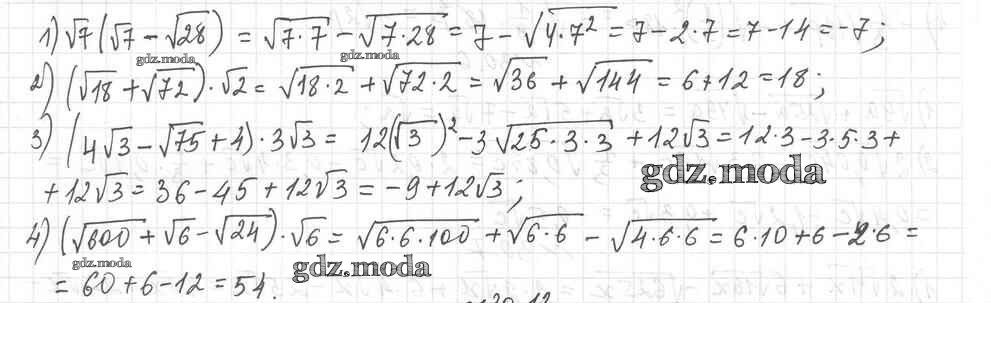 1) √7 (√7 - √28) = √7·7 - √7·28 = 7 - √4·7² = 7 - 2·7 = 7 - 14 = -7;
gdz.moda gdz.moda
2) (√18 + √72)·√2 = √18·2 + √72·2 = √36 + √144 = 6+12 = 18;
3) (4√3 - √75 + 4)·3√3 = 12(√3)² - 3√25·3·3 + 12√3 = 12·3 - 3·5·3 +
gdz.moda
+ 12√3 = 36 - 45 + 12√3 = -9 + 12√3;
4) (√600 + √6 - √24)·√6 = √6·6·100 + √6·6 - √4·6·6 = 6·10 + 6 - 2·6 =
gdz.moda gdz.moda
= 60 + 6 - 12 = 54.